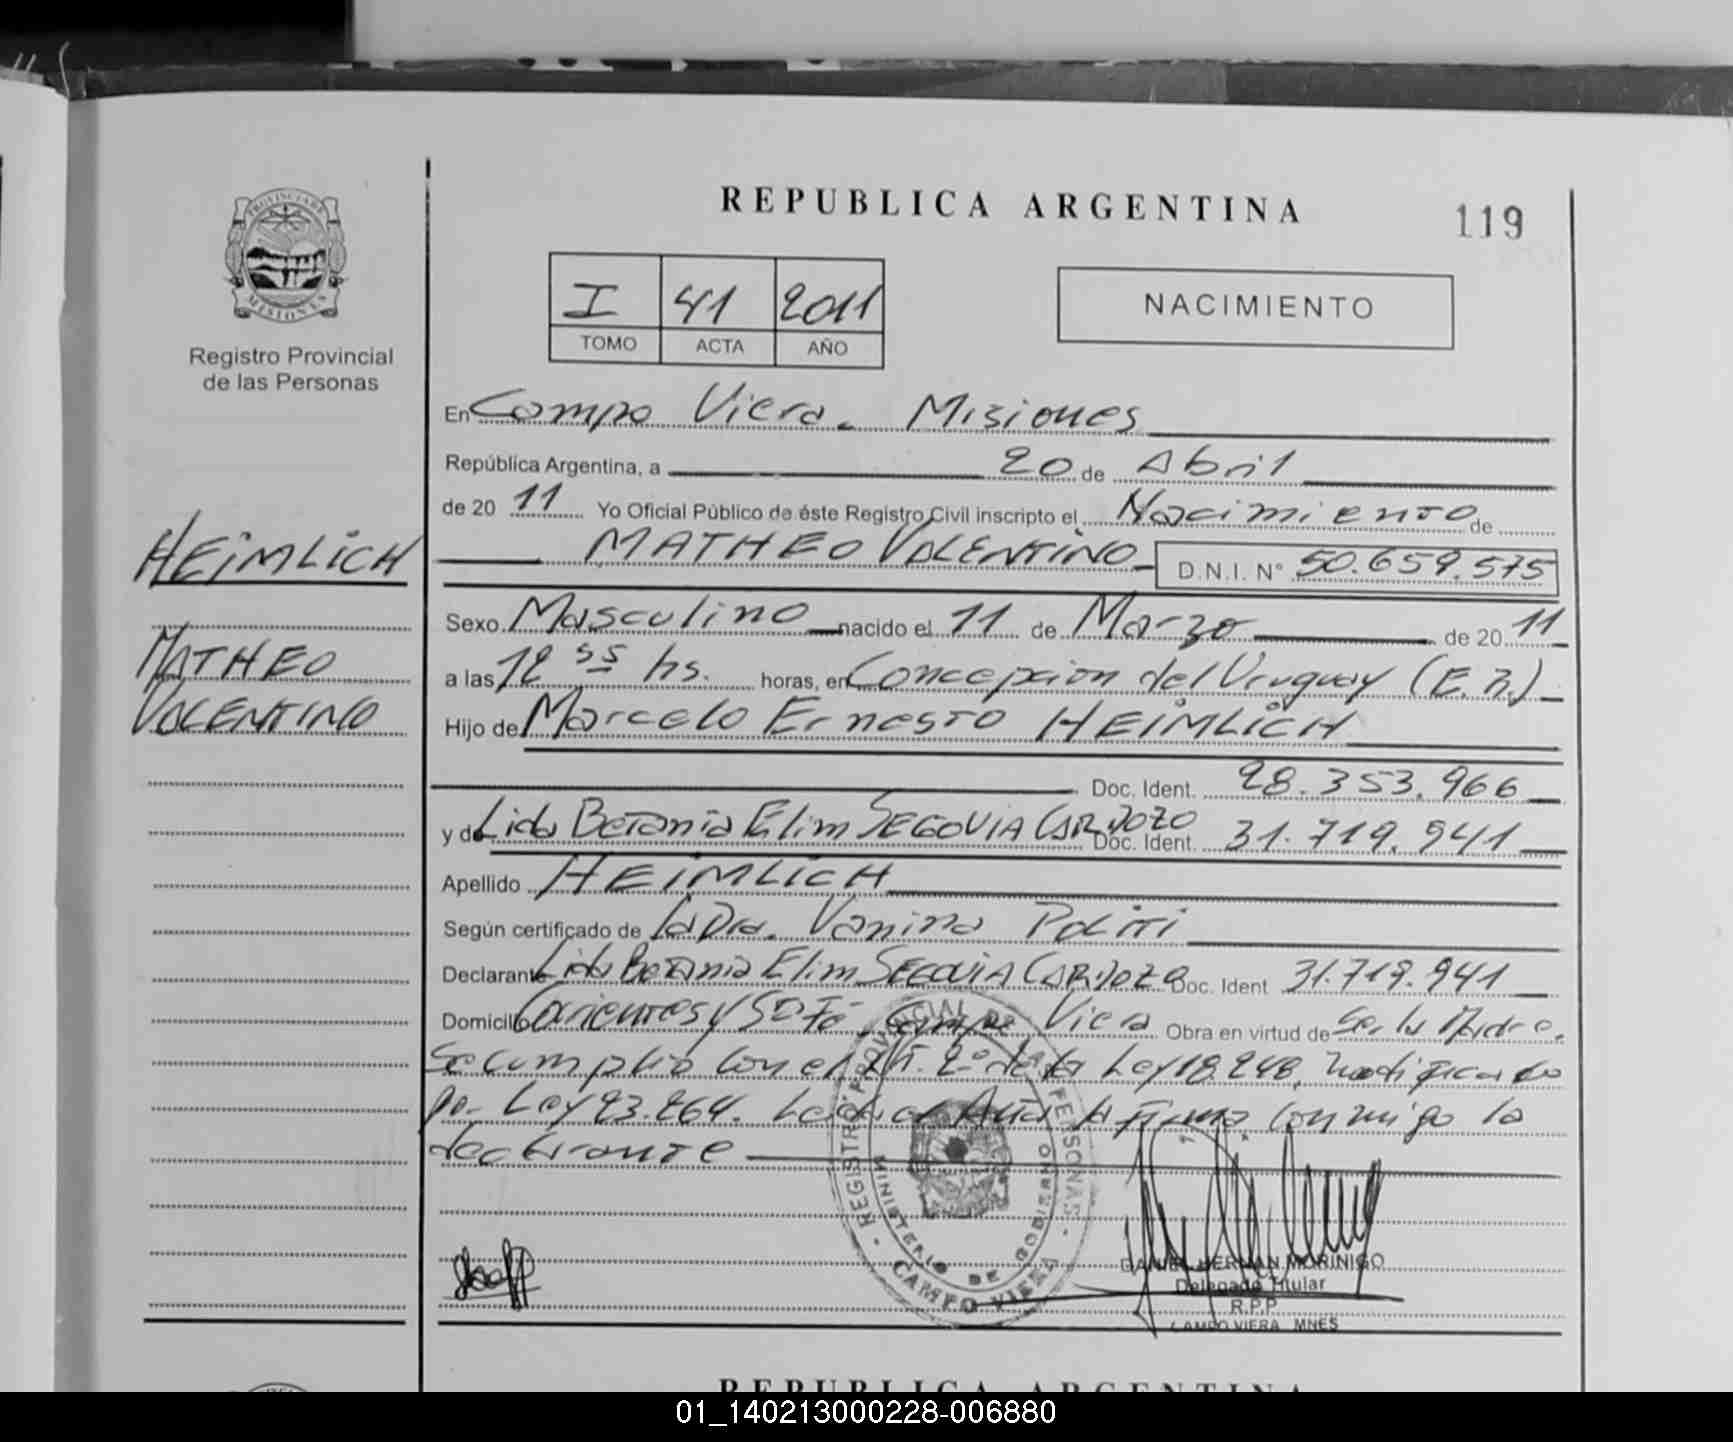 REPUBLICA ARGENTINA
119
PROVINCIA DE
MISIONES
Registro Provincial
de las Personas
I 41 2011
TOMO ACTA AÑO
NACIMIENTO
En Campo Viera. Misiones
República Argentina, a 20 de Abril
de 20 11 Yo Oficial Público de éste Registro Civil inscripto el Nacimiento de
HEIMLICH
MATHEO VALENTINO D.N.I. N° 50.659.575
Sexo Masculino nacido el 11 de Marzo de 20 11
MATHEO
VALENTINO
a las 12 55 hs. horas, en Concepcion del Uruguay (E.R.)
Hijo de Marcelo Ernesto HEIMLICH
Doc. Ident. 28.353.966
y de Lida Betania Elim SEGOVIA CARDOZO Doc. Ident. 31.719.941
Apellido HEIMLICH
Según certificado de la Dra. Vanina Politti
Declarante Lida Betania Elim SEGOVIA CARDOZO Doc. Ident 31.719.941
Domicilio Corrientes y Sta Fé Campo Viera Obra en virtud de Ser la Madre.
Se cumplio con el Art. 2° de la Ley 18.248, modificado
por Ley 23.264. Leida el Acta la firma conmigo la
declarante
REGISTRO PROVINCIAL DE LAS PERSONAS
MINISTERIO DE GOBIERNO
CAMPO VIERA
DANIEL HERNAN MORINIGO
Delegado Titular
R.P.P
CAMPO VIERA MNES
REPUBLICA ARGENTINA
01_140213000228-006880